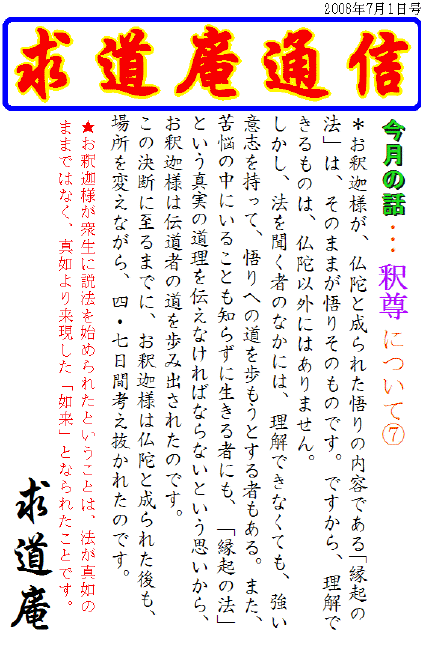 2008年7月1日号
求道庵通信
今月の話・・・釈尊について⑦
＊お釈迦様が、仏陀と成られた悟りの内容である「縁起の
法」は、そのままが悟りそのものです。ですから、理解で
きるものは、仏陀以外にはありません。
しかし、法を聞く者のなかには、理解できなくても、強い
意志を持って、悟りへの道を歩もうとする者もある。また、
苦悩の中にいることも知らずに生きる者にも、「縁起の法」
という真実の道理を伝えなければならないという思いから、
お釈迦様は伝道者の道を歩み出されたのです。
この決断に至るまでに、お釈迦様は仏陀と成られた後も、
場所を変えながら、四・七日間考え抜かれたのです。
★お釈迦様が衆生に説法を始められたということは、法が真如の
ままではなく、真如より来現した「如来」となられたことです。
求道庵